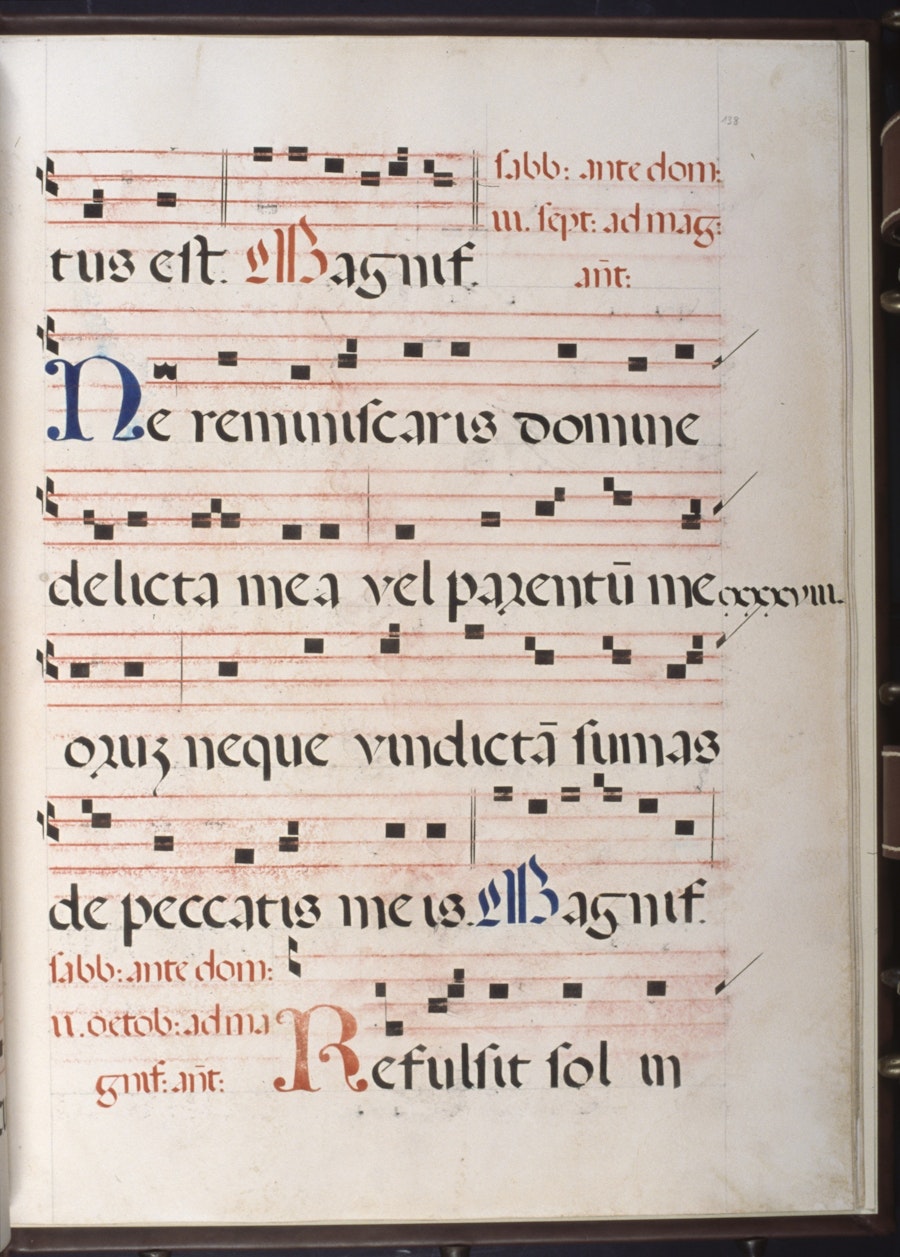 138
sabb: ante dom:
iii. sept: ad mag:
añt:
tus est. Magnif.
Ne reminiscaris domine
delicta mea vel parentū me
cxxxxviii.
oruꝫ neque vindictā sumas
de peccatis meis. Magnif.
sabb: ante dom:
ii. octob: ad ma
gnif: añt:
Refulsit sol in